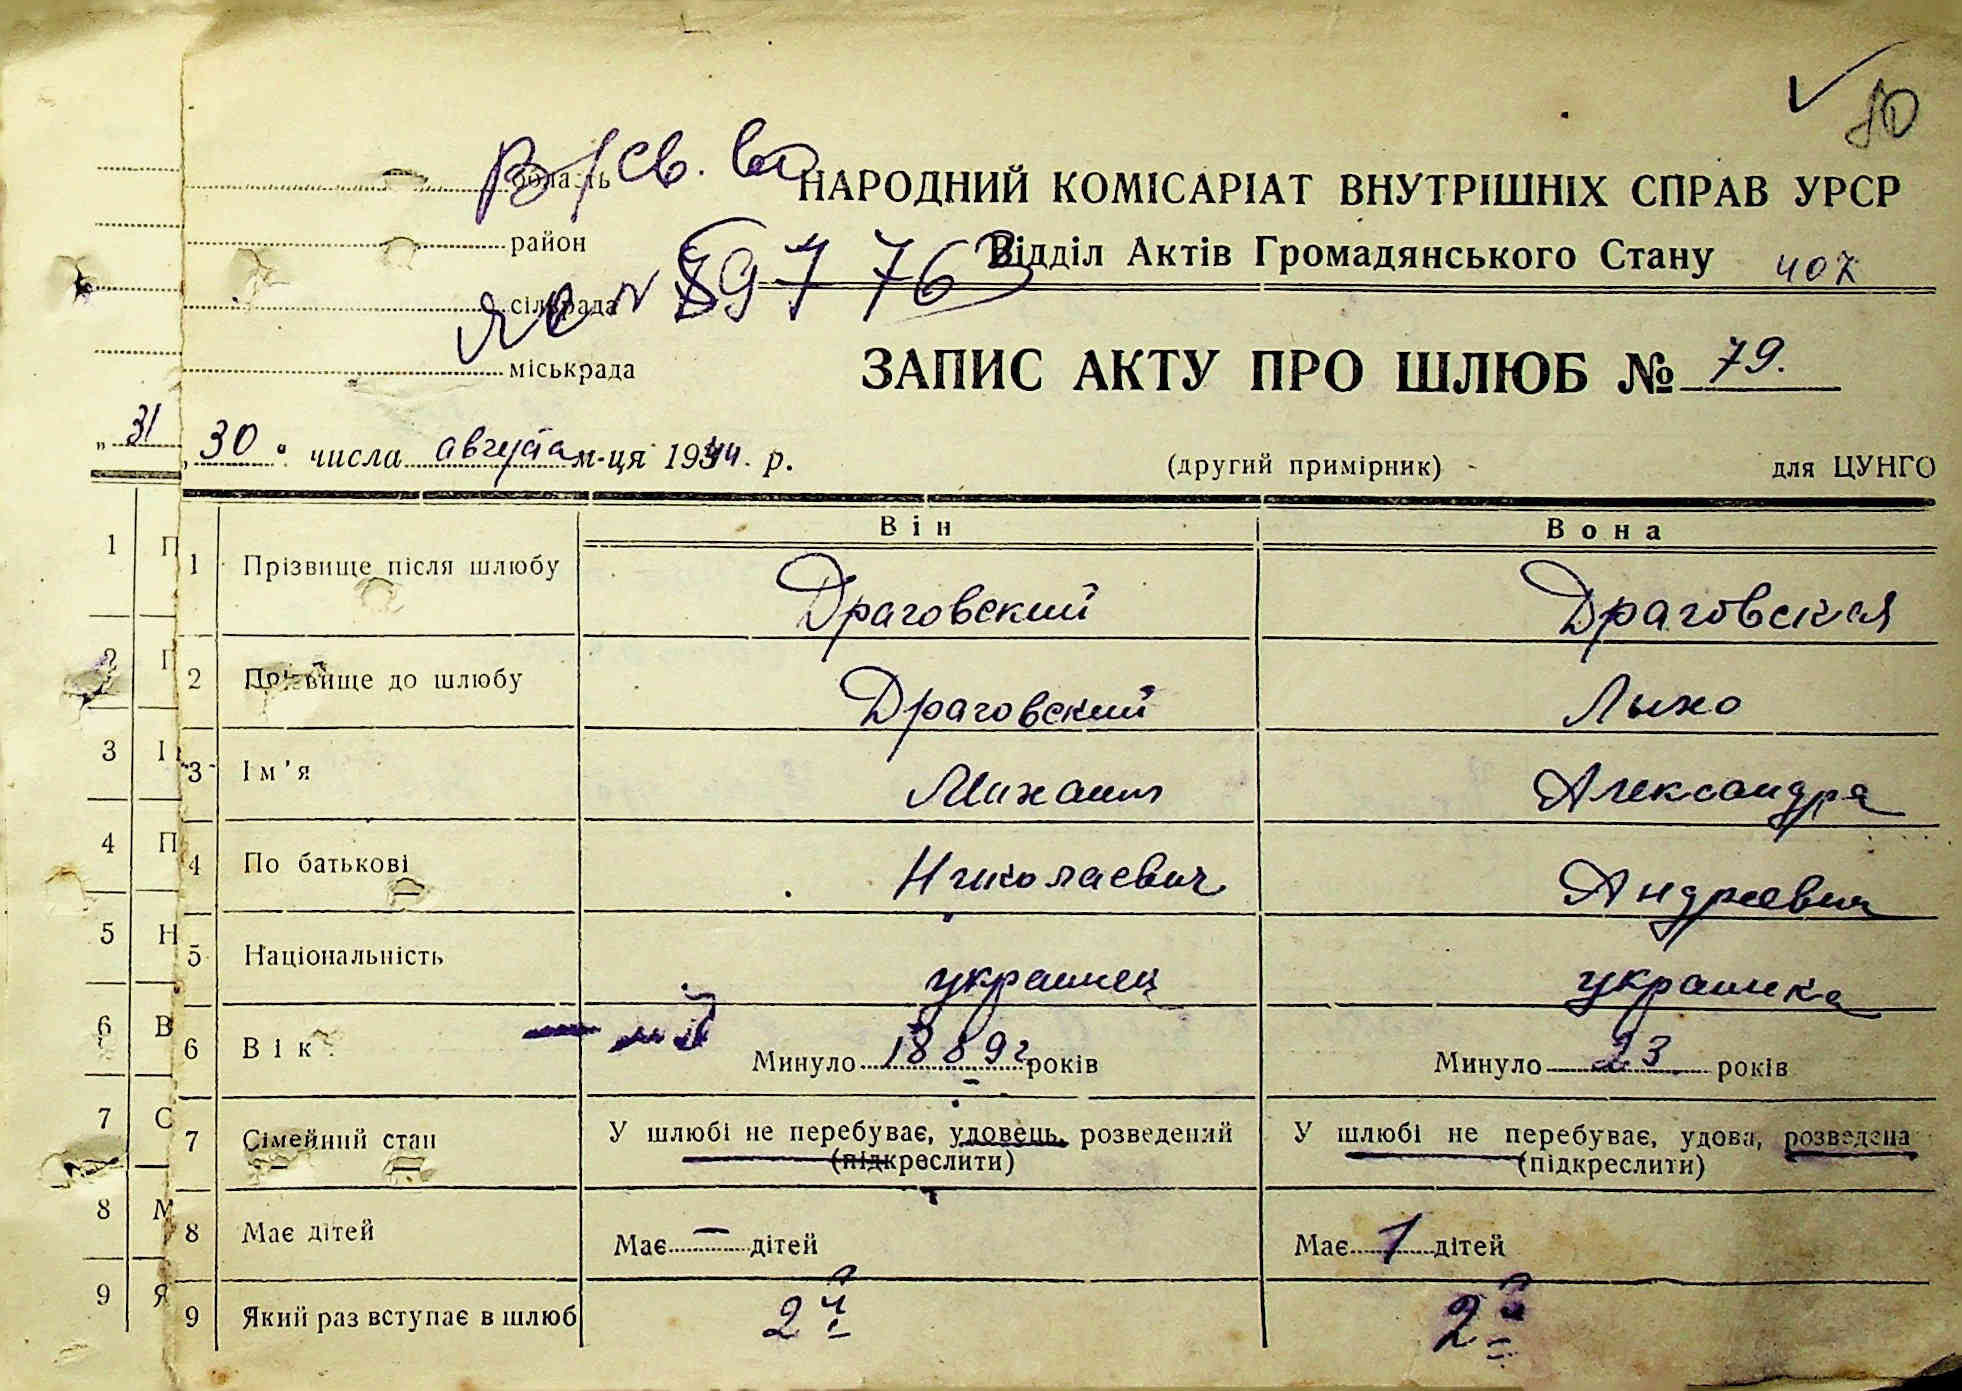 80
в/св. во НАРОДНИЙ КОМІСАРІАТ ВНУТРІШНІХ СПРАВ УРСР
область
район
Відділ Актів Громадянського Стану 407
сільрада
ЯЮ № 897763
міськрада
ЗАПИС АКТУ ПРО ШЛЮБ № 79.
„ 31
„ 30 " числа августа м-ця 1944. р.
(другий примірник) для ЦУНГО
Він Вона
1 П
1 Прізвище після шлюбу Драговский Драговская
2 П
2 Прізвище до шлюбу Драговский Лыхо
3 І
3 Ім'я Михаил Александра
4 П
4 По батькові Николаевич Андреевич
5 Н
5 Національність украинец украинка
6 В
6 Вік Минуло 1889 г років Минуло 23 років
7 С
7 Сімейний стан У шлюбі не перебуває, удовець, розведений У шлюбі не перебуває, удова, розведена
(підкреслити) (підкреслити)
8 М
8 Має дітей Має – дітей Має 1 дітей
9 Я
9 Який раз вступає в шлюб 2й 2й